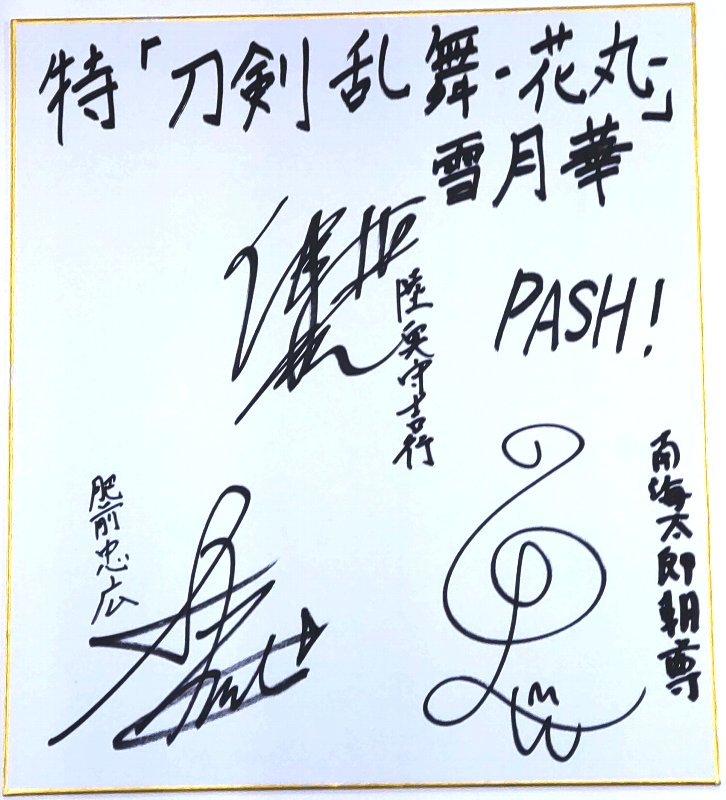 特「刀剣乱舞-花丸-」
雪月華
PASH!
陸奥守吉行
南海太郎朝尊
肥前忠広